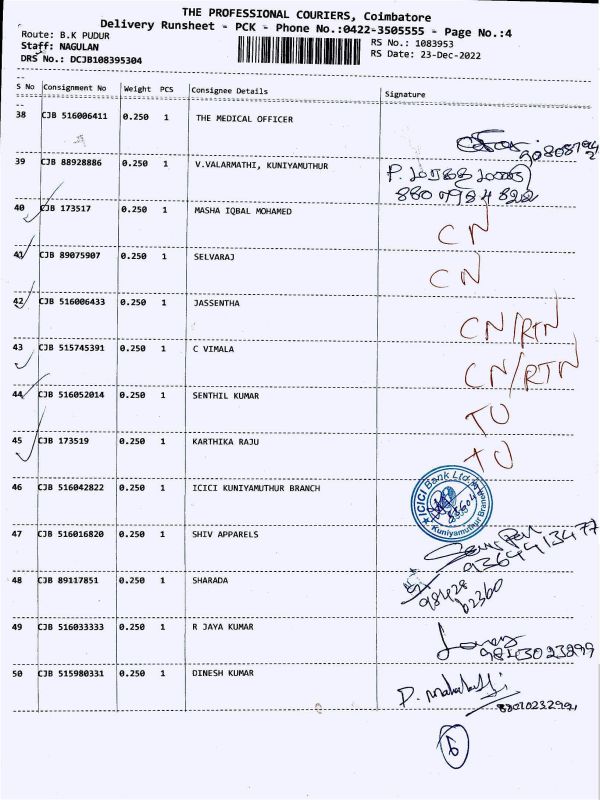 THE PROFESSIONAL COURIERS, Coimbatore
Delivery Runsheet - PCK - Phone No.:0422-3505555 - Page No.:4
Route: B.K PUDUR
RS No.: 1083953
Staff: NAGULAN
RS Date: 23-Dec-2022
DRS No.: DCJB108395304
S No Consignment No Weight PCS Consignee Details Signature
38 CJB 516006411 0.250 1 THE MEDICAL OFFICER
39 CJB 88928886 0.250 1 V.VALARMATHI, KUNIYAMUTHUR
40 CJB 173517 0.250 1 MASHA IQBAL MOHAMED CN
41 CJB 89075907 0.250 1 SELVARAJ CN
42 CJB 516006433 0.250 1 JASSENTHA CN/RTN
43 CJB 515745391 0.250 1 C VIMALA CN/RTN
44 CJB 516052014 0.250 1 SENTHIL KUMAR TO
45 CJB 173519 0.250 1 KARTHIKA RAJU TO
46 CJB 516042822 0.250 1 ICICI KUNIYAMUTHUR BRANCH
ICICI Bank Ltd
Kuniyamuthur Branch
47 CJB 516016820 0.250 1 SHIV APPARELS
9364413477
48 CJB 89117851 0.250 1 SHARADA
98428
62360
49 CJB 516033333 0.250 1 R JAYA KUMAR
9843023299
50 CJB 515980331 0.250 1 DINESH KUMAR
6